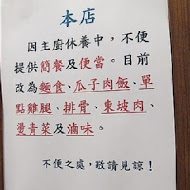 本店
因主廚休養中，不便
提供簡餐及便當。目前
改為麵食、瓜子肉飯、單
點雞腿、排骨、東坡肉、
燙青菜及滷味。
不便之處，敬請見諒！